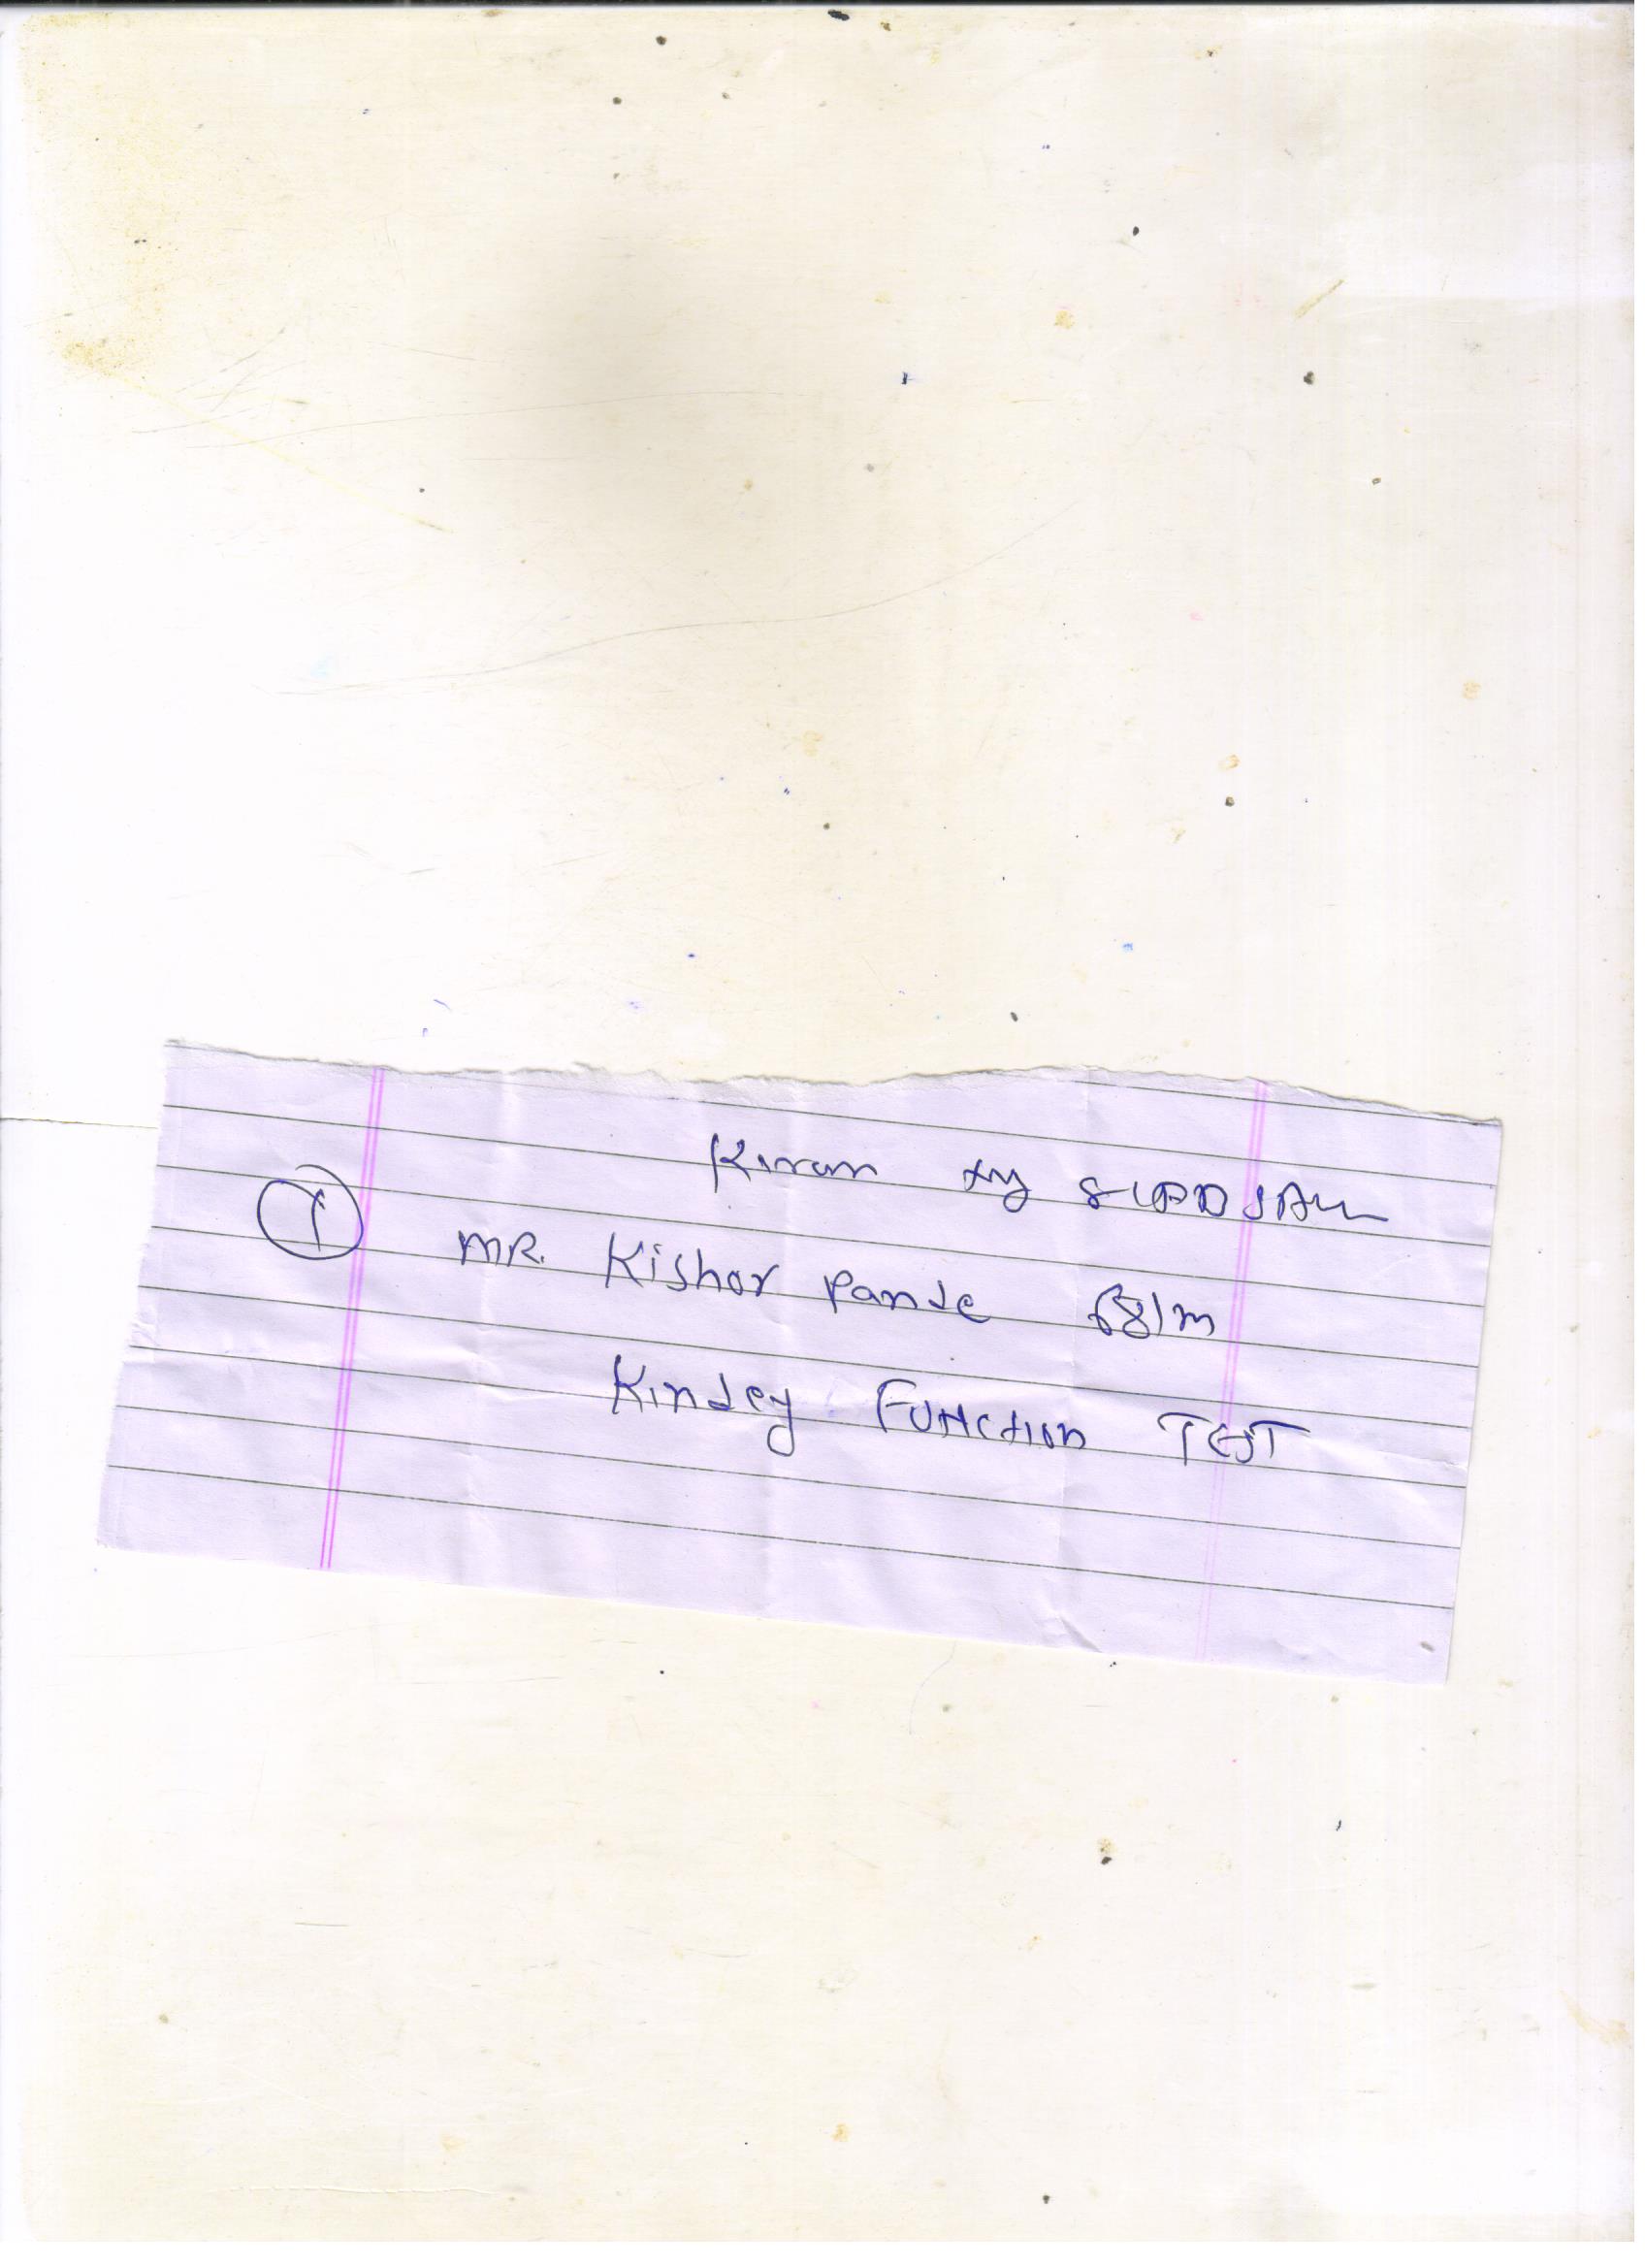 Kiran
① MR. Kishor Pande 68/m
Kindey Function TEST